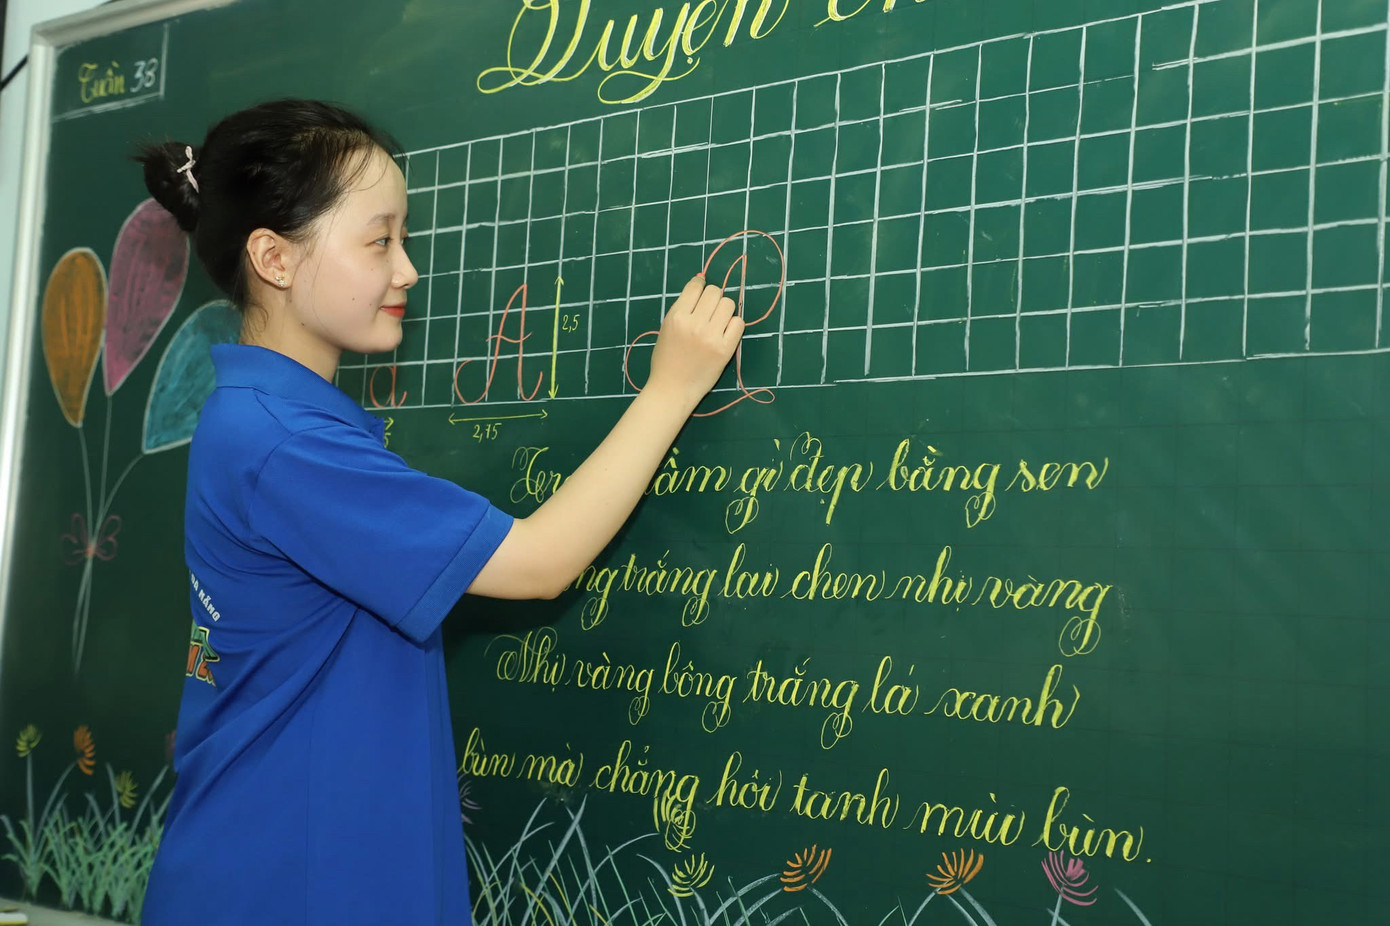 Tuần 33
Luyện ch
a A 2,5
5 2,75
Tr âm gì đẹp bằng sen
ng trắng lai chen nhị vàng
Nhị vàng bông trắng lá xanh
bùn mà chẳng hôi tanh mùi bùn.
NẴNG